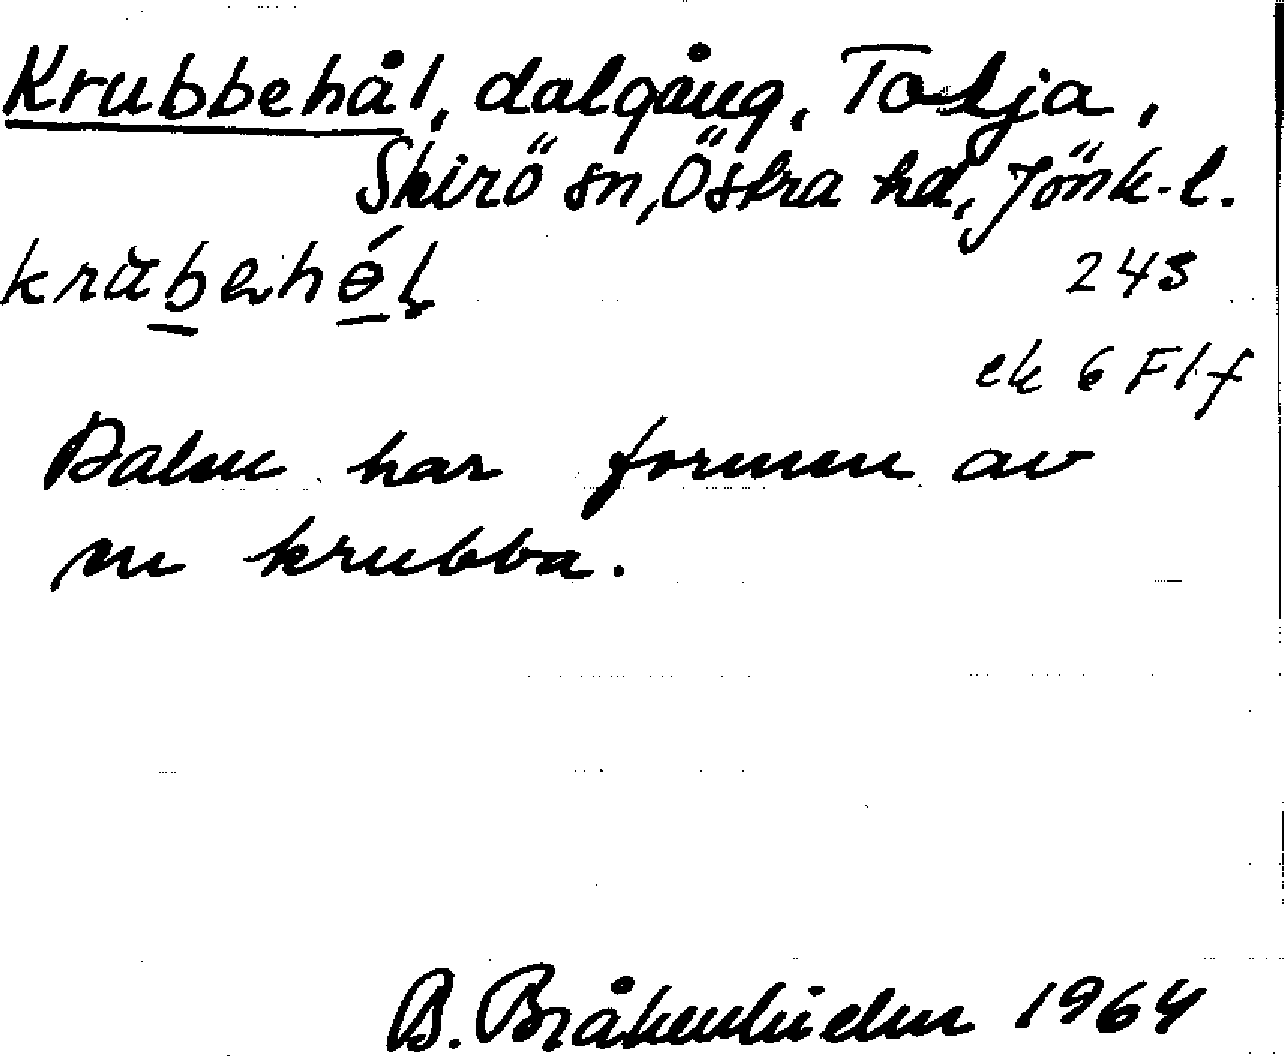 Krubbehål, dalgång, Tolja,
Skirö sn, Östra hd, Jönk. l.
243
ek 6 F1f
Dalen har formen av
en krubba.
B. Bråkenhielm 1964